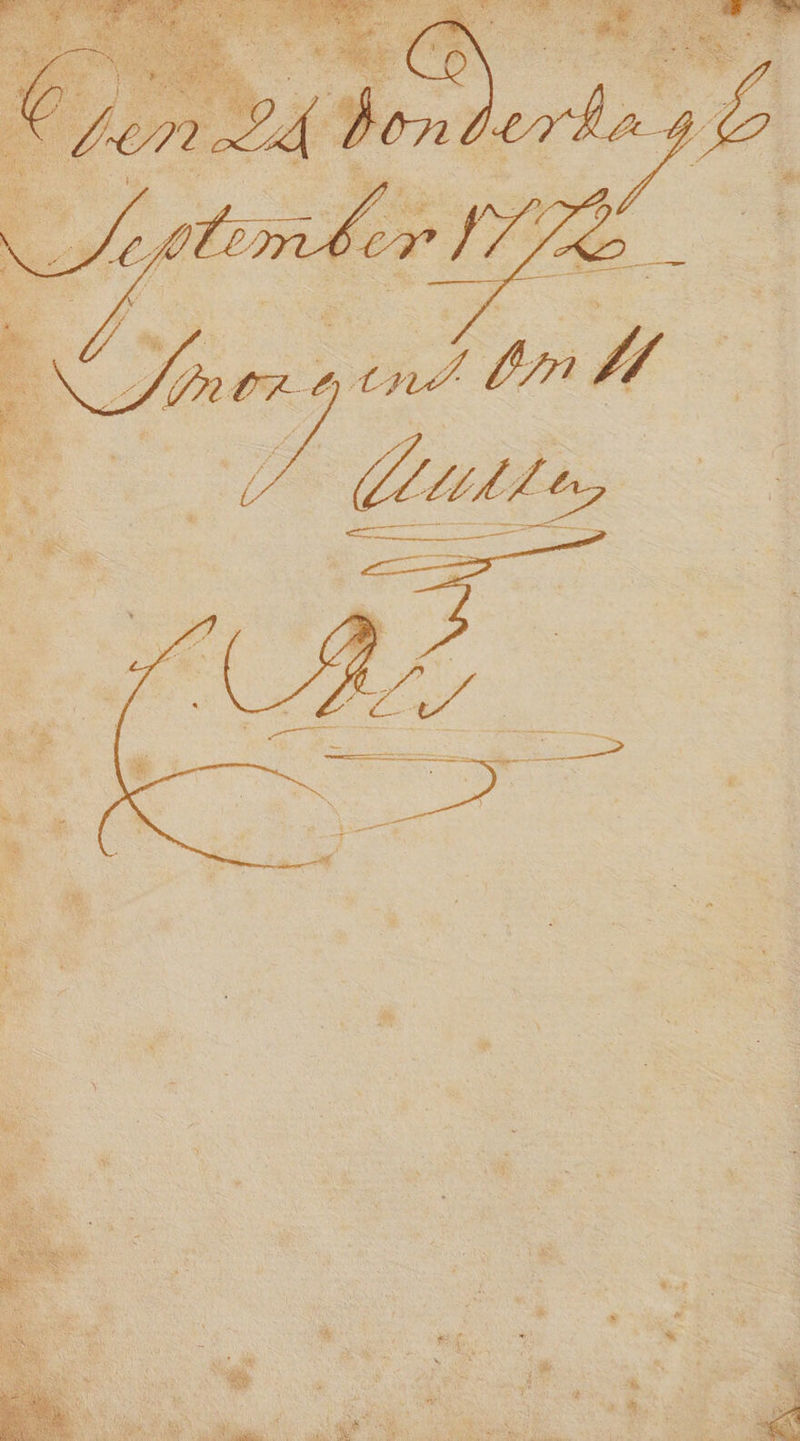 Den 24 donderdagh
September 1772
Smorgens om 11
Uuren